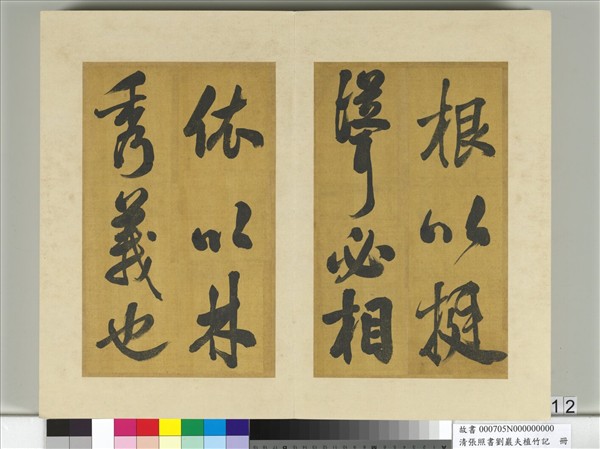 根以挺
聳必相
依以林
秀義也
12
故書 000705N000000000
清張照書劉巖夫植竹記 冊